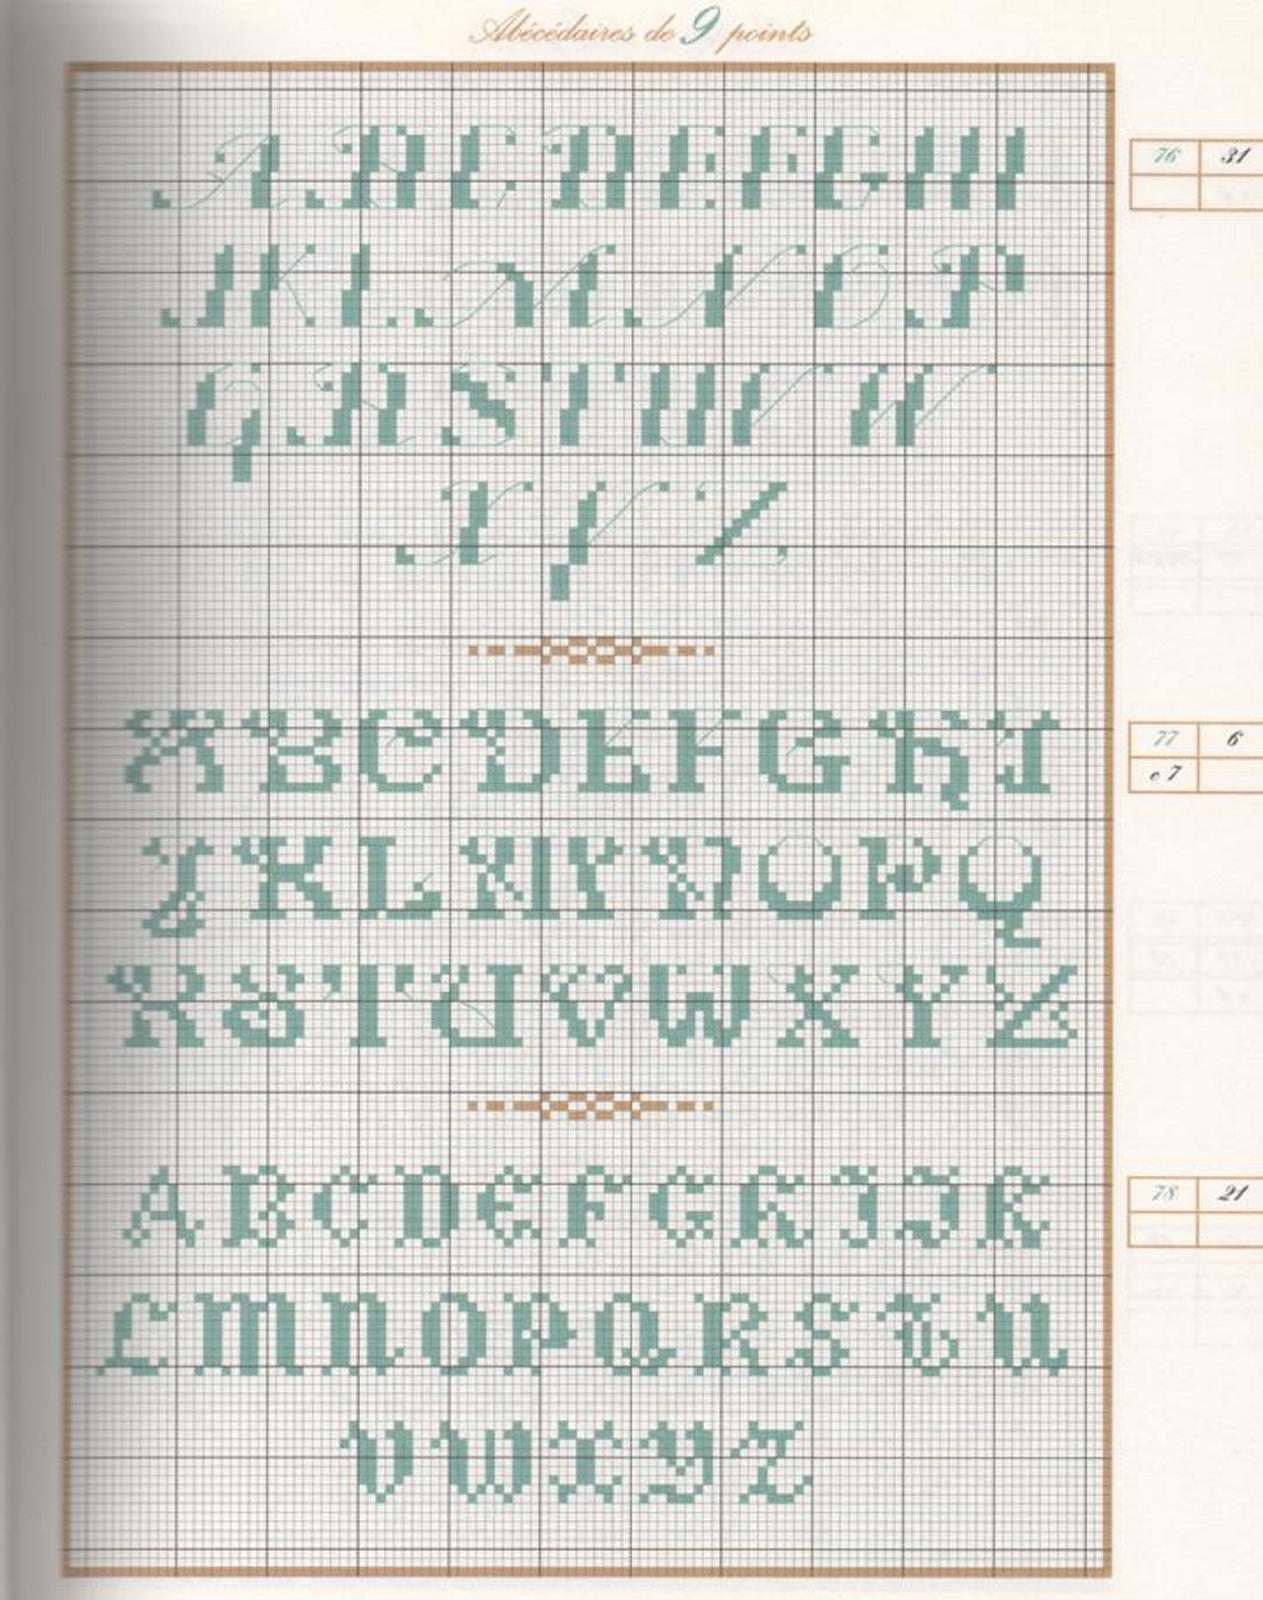 Abécédaires de 9 points
A B C D E F G H I
J K L M N O P
Q R S T U V W
X Y Z
76 31
A B C D E F G H I
J K L M N O P Q
R S T U V W X Y Z
77 6
c 7
A B C D E F G H I J K
L M N O P Q R S T U
V W X Y Z
78 21